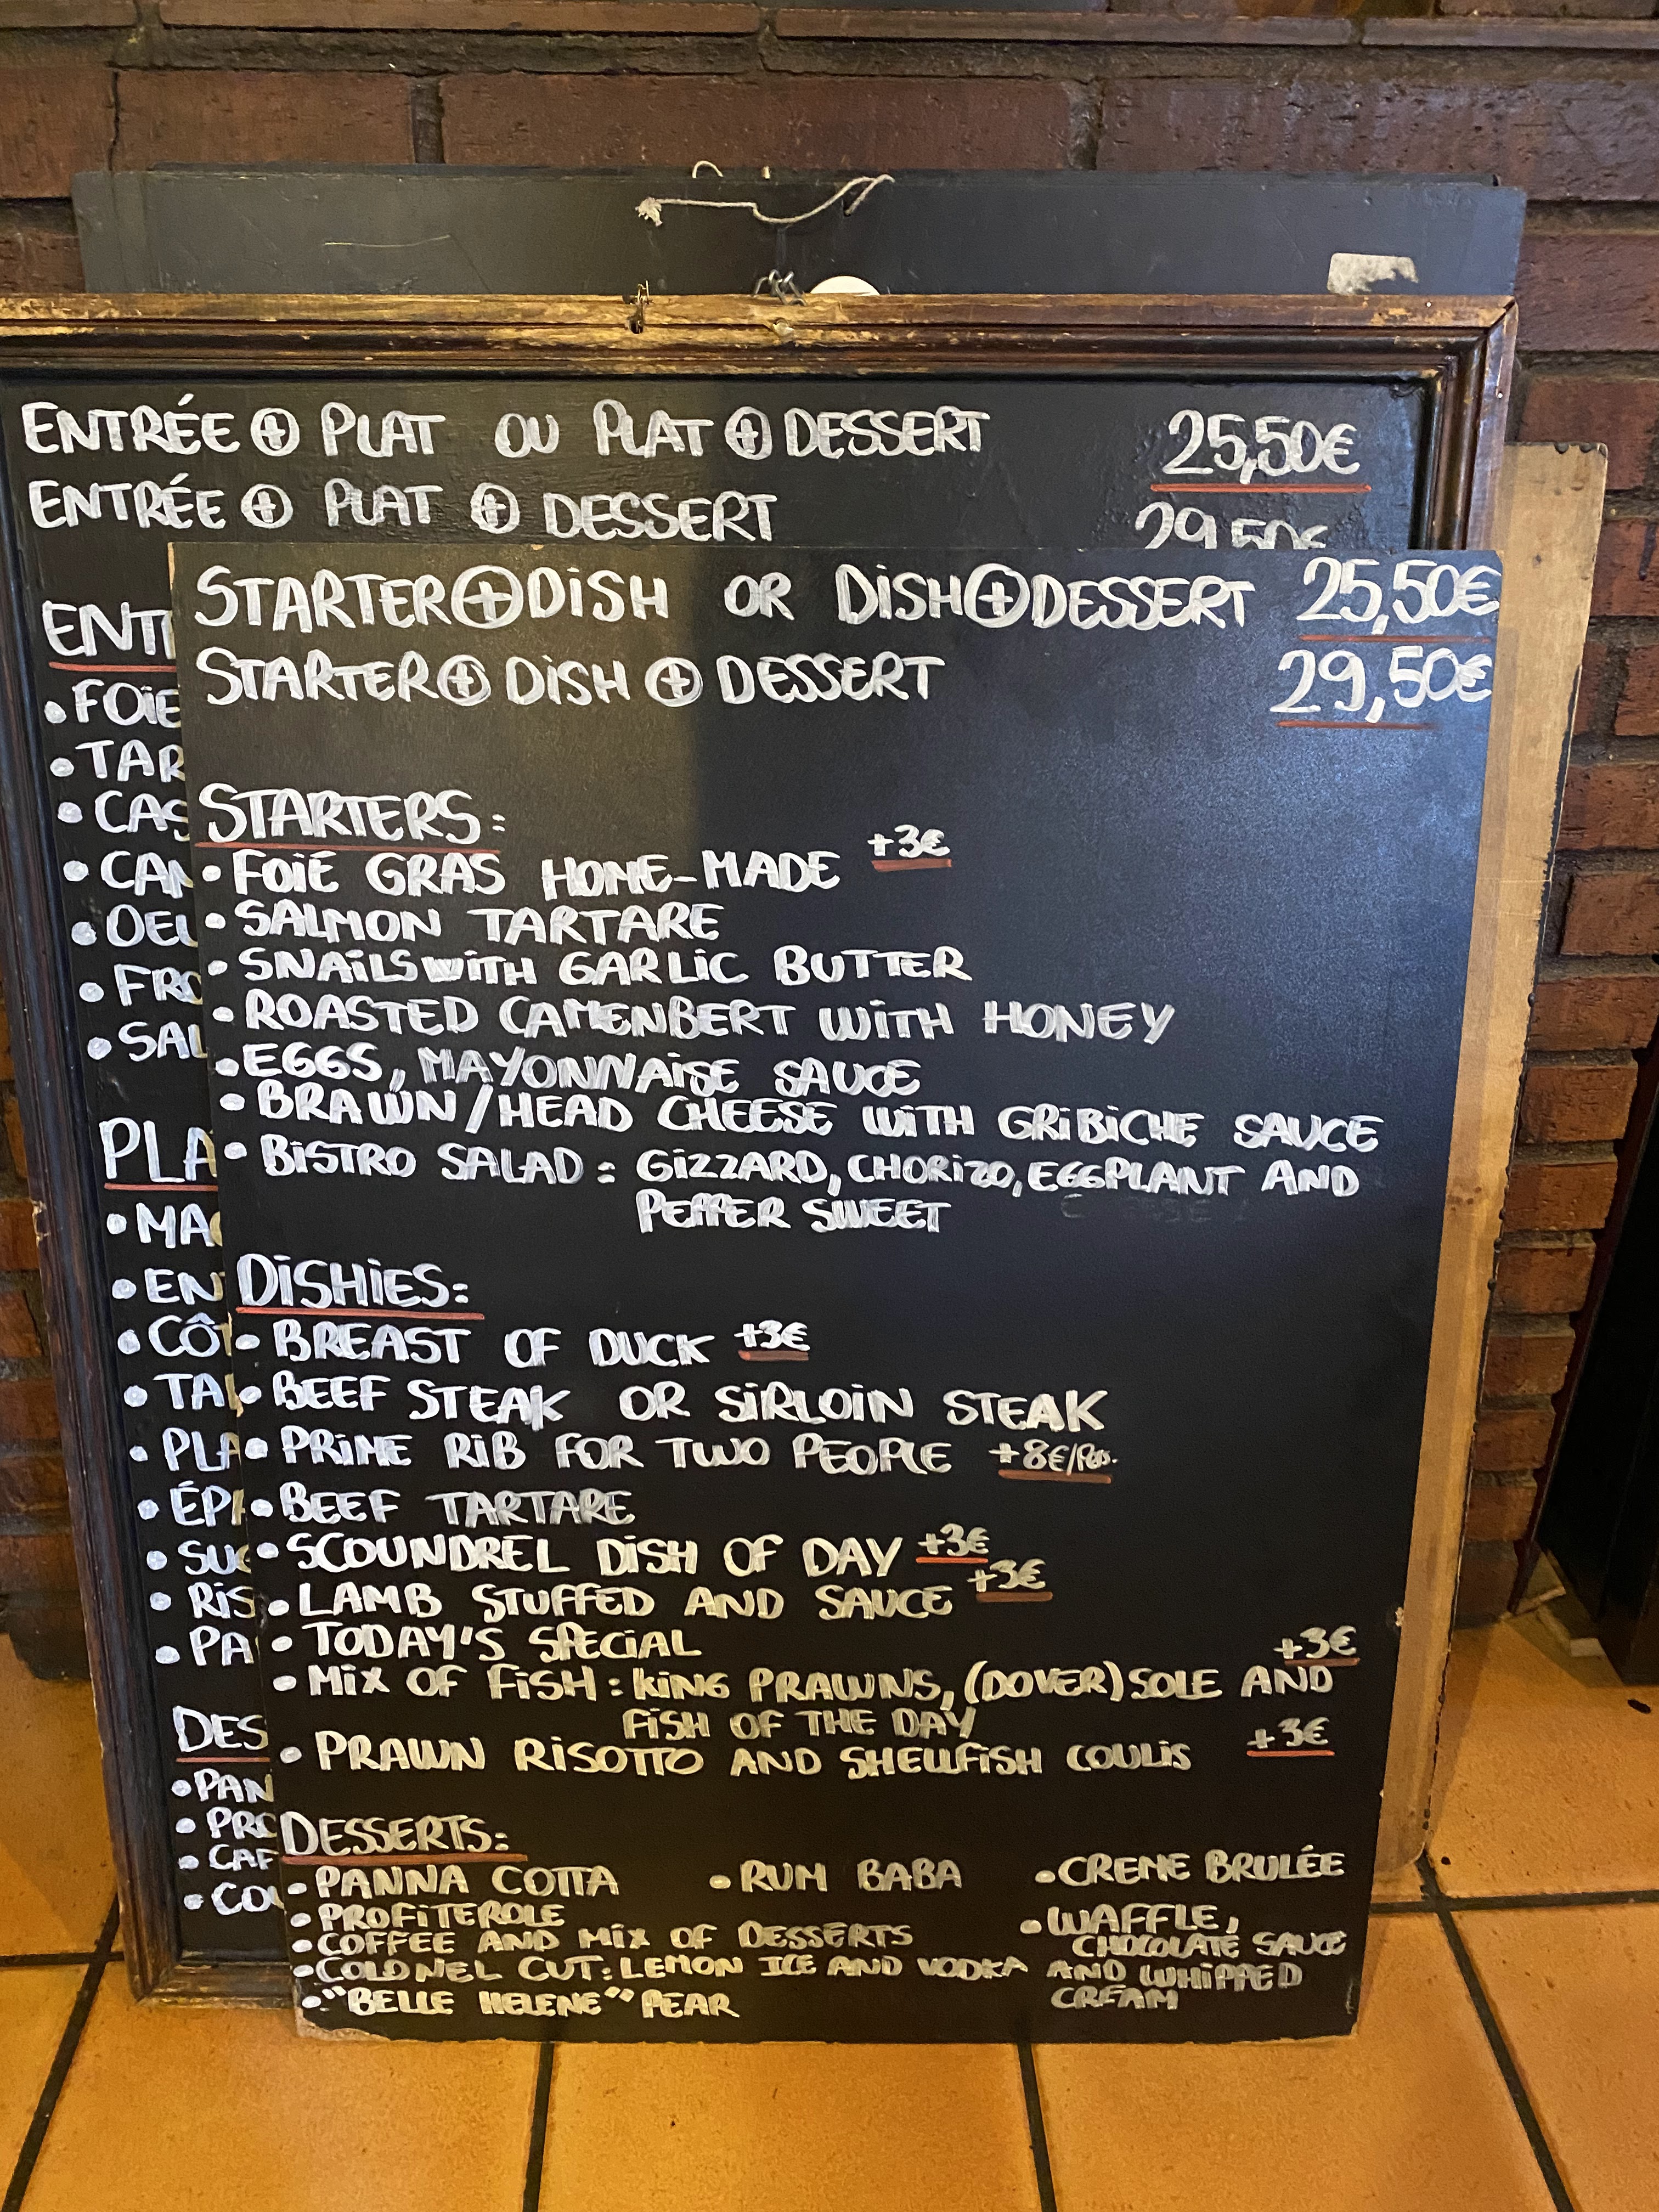 ENTRÉE + PLAT OU PLAT + DESSERT 25,50€
ENTRÉE + PLAT + DESSERT 29,50€
STARTER + DISH OR DISH + DESSERT 25,50€
STARTER + DISH + DESSERT 29,50€
STARTERS:
• FOIE GRAS HOME-MADE +3€
• SALMON TARTARE
• SNAILS WITH GARLIC BUTTER
• ROASTED CAMENBERT WITH HONEY
• EGGS, MAYONNAISE SAUCE
• BRAWN/HEAD CHEESE WITH GRIBICHE SAUCE
• BISTRO SALAD: GIZZARD, CHORIZO, EGGPLANT AND
PEPPER SWEET
DISHIES:
• BREAST OF DUCK +3€
• BEEF STEAK OR SIRLOIN STEAK
• PRIME RIB FOR TWO PEOPLE +8€/Pers.
• BEEF TARTARE
• SCOUNDREL DISH OF DAY +3€
• LAMB STUFFED AND SAUCE +3€
• TODAY'S SPECIAL
• MIX OF FISH: KING PRAWNS, (DOVER) SOLE AND +3€
FISH OF THE DAY
• PRAWN RISOTTO AND SHELLFISH COULIS +3€
DESSERTS:
• PANNA COTTA • RUM BABA • CREME BRULÉE
• PROFITEROLE • WAFFLE,
• COFFEE AND MIX OF DESSERTS CHOCOLATE SAUCE
• COLONEL CUT: LEMON ICE AND VODKA AND WHIPPED
• "BELLE HELENE" PEAR CREAM
ENT
• FOIE
• TAR
• CAS
• CAM
• OEU
• FRO
• SAL
PLA
• MAG
• EN
• CÔT
• TA
• PLA
• ÉPA
• SU
• RIS
• PA
DES
• PAN
• PRO
• CAF
• COU